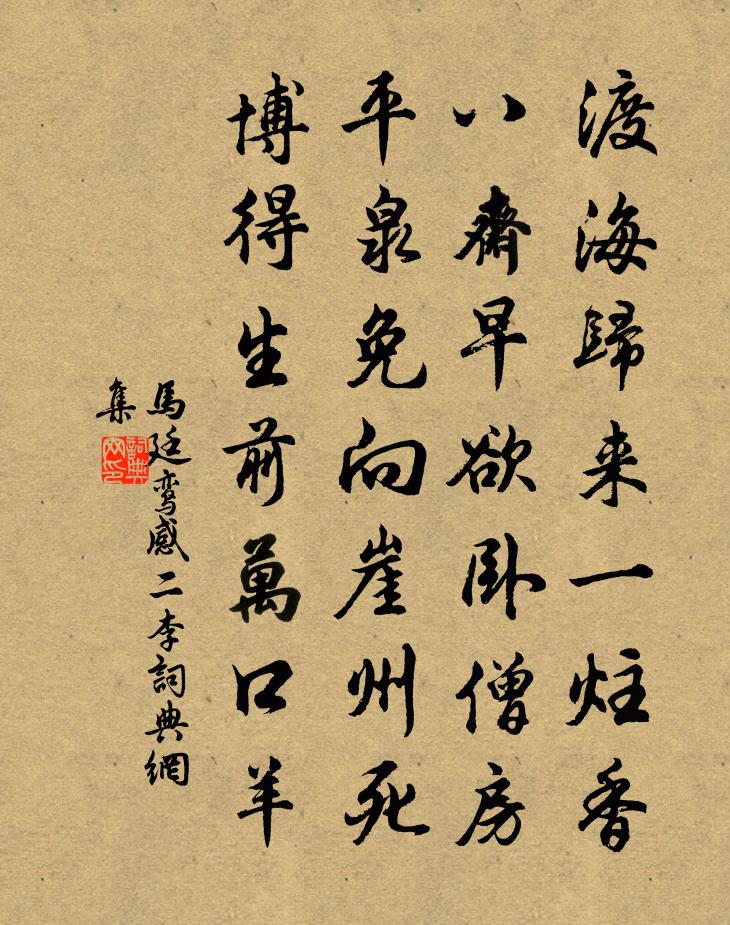 渡海歸来一炷香
八齋早欲卧僧房
平泉免向崖州死
博得生前萬口羊
馬廷鸞感二李詞典網
集
詞典网印